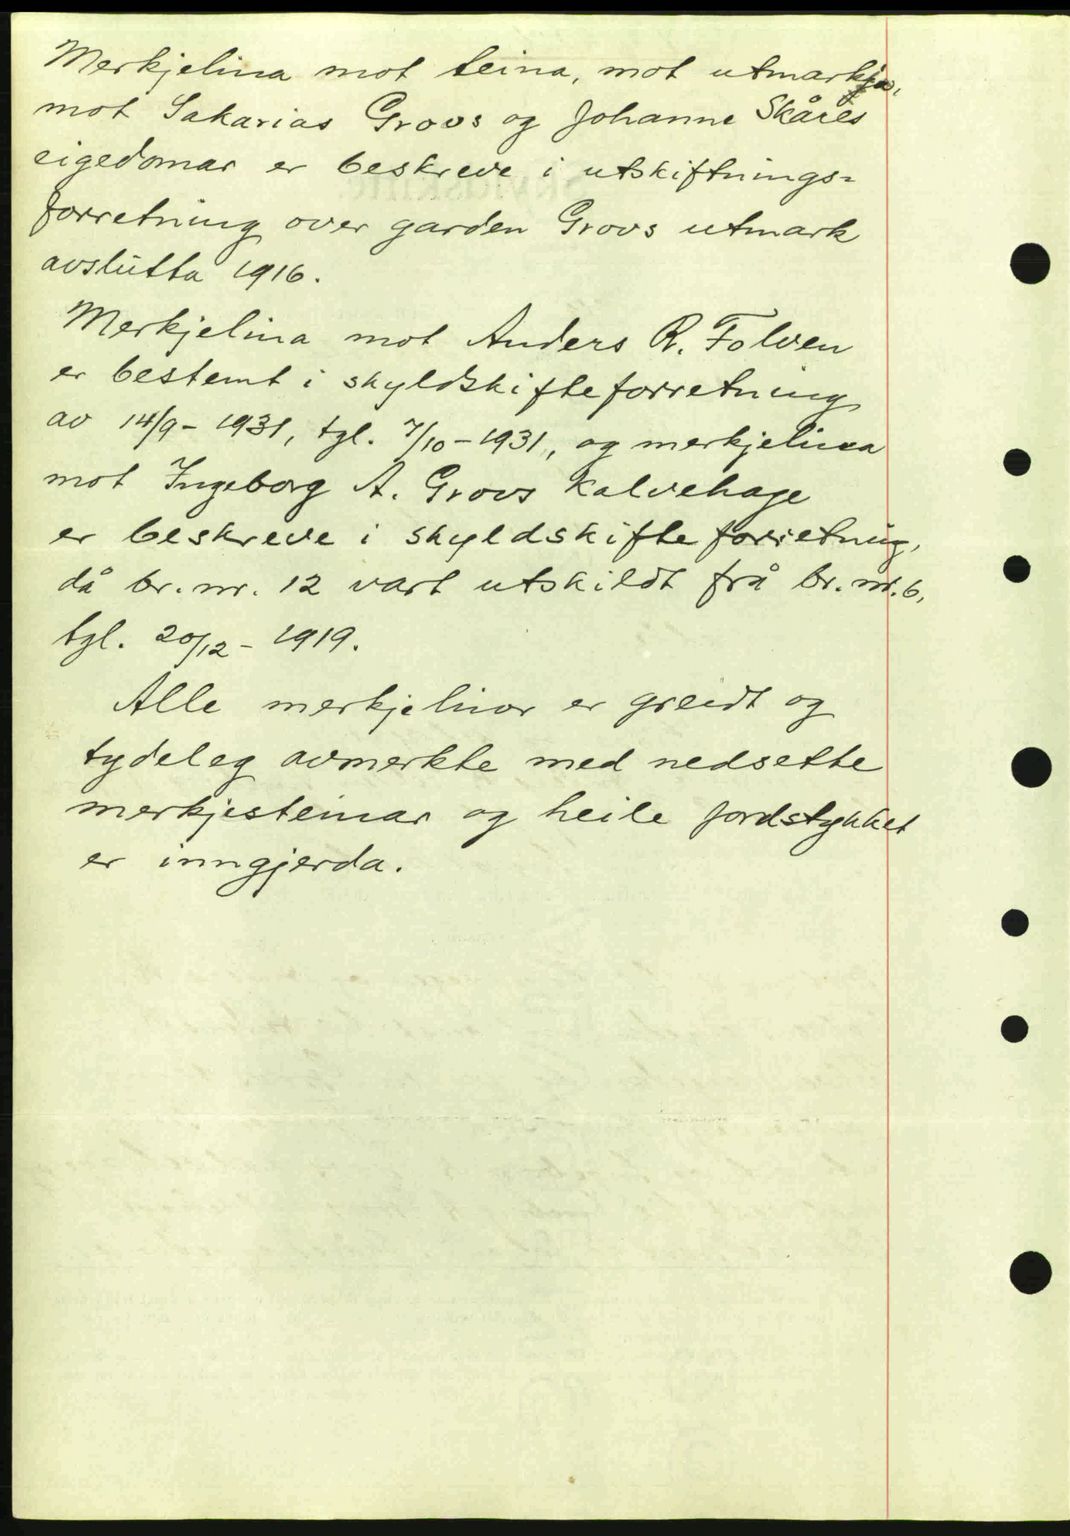 Merkjelina mot teina, mot utmarkja,
mot Sakarias Grovs og Johanne Skåres
eigedomar er beskreve i utskiftnings=
forretning over garden Grovs utmark
avslutta 1916.
Merkjelina mot Anders R. Folven
er bestemt i skyldskifteforretning
av 14/9 - 1931, tgl. 7/10 - 1931, og merkjelina
mot Ingeborg A. Grovs kalvehage
er beskreve i skyldskifteforretning,
då br. nr. 12 vart utskildt frå br. nr. 6,
tgl. 20/12 - 1919.
Alle merkjelinor er greidt og
tydeleg avmerkte med nedsette
merkjesteinar og heile jordstykket
er inngjerda.